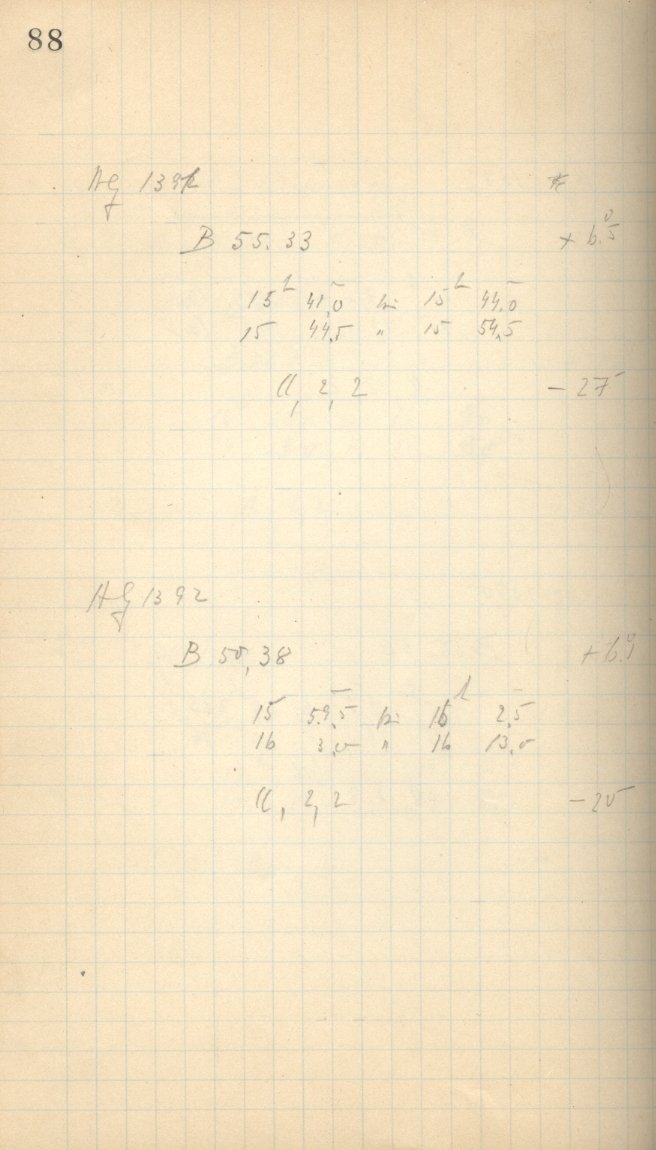 88
Ag 1391
B 55.33 + 6.5°
15ʰ 41,0 bis 15ʰ 44,0
15 44,5 " 15 54,5
a, 2, 2 - 27
Ag 1392
B 50,38 + 6.9
15 59,5 bis 16ʰ 2,5
16 3,0 " 16 13,0
a, 2, 2 - 25